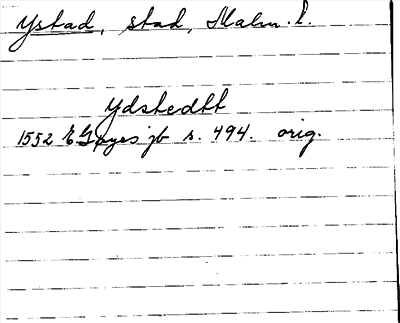 Ystad, stad, Malm. l.
Ydstedtt
1552 E Gøyes jb s. 494. orig.